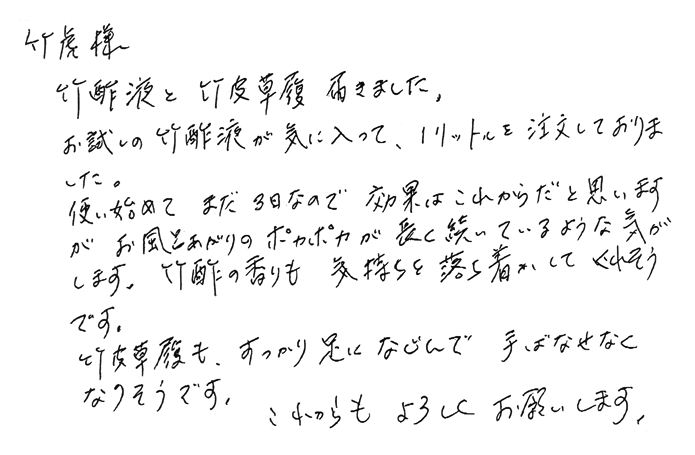 竹虎様
竹酢液と竹皮草履届きました。
お試しの竹酢液が気に入って、1リットルを注文しておりま
した。
使い始めてまだ3日なので効果はこれからだと思います
がお風呂あがりのポカポカが長く続いているような気が
します。竹酢の香りも気持ちを落ち着かしてくれそう
です。
竹皮草履も、すっかり足になじんで手ばなせなく
なりそうです。
これからもよろしくお願いします。